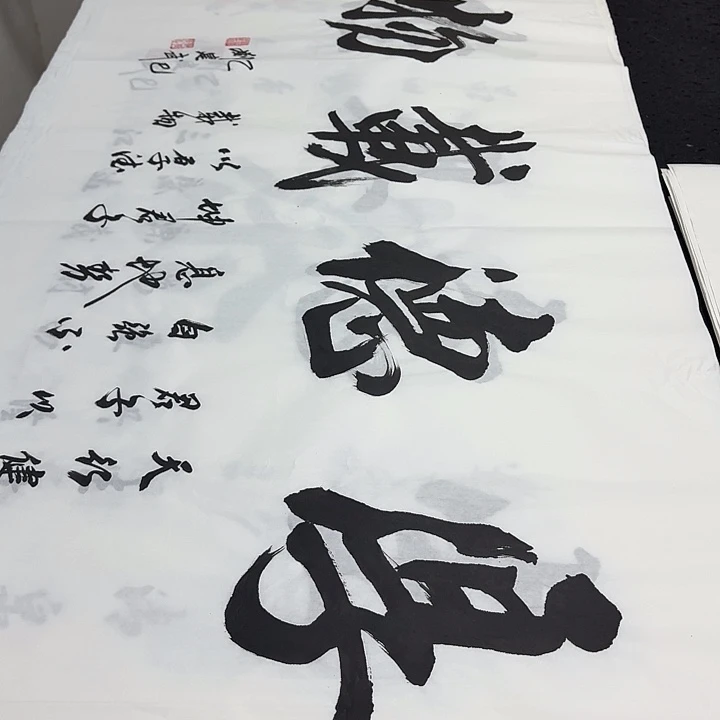 厚德載物
天行健
君子以
自強不
息地勢
坤君子
以厚德
載物